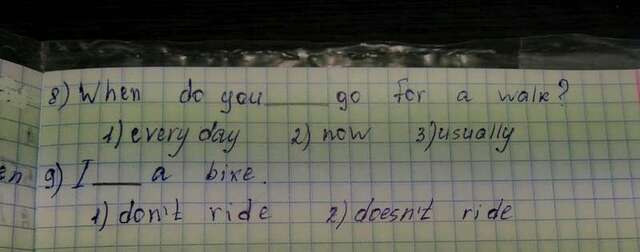 8) When do you ____ go for a walk?
1) every day 2) now 3) usually
9) I ____ a bike.
1) don't ride 2) doesn't ride